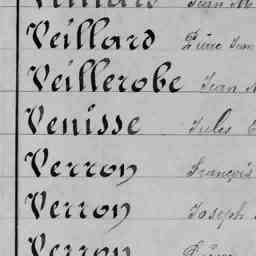 Veillard Pierre Jean
Veillerobe Jean M
Venisse Jules
Verron François
Verron Joseph
Verron